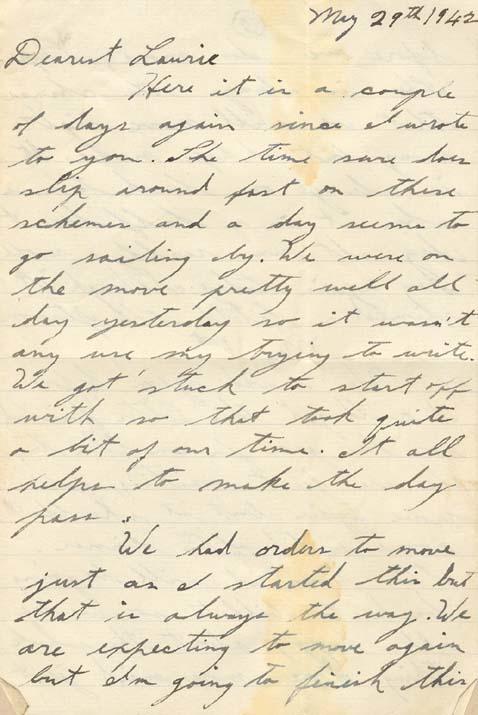 May 29th 1942
Dearest Laurie
Here it is a couple
of days again since I wrote
to you. The time sure does
slip around fast on these
schemes and a day seems to
go sailing by. We were on
the move pretty well all
day yesterday so it wasn't
any use my trying to write.
We got stuck to start off
with so that took quite
a bit of our time. It all
helps to make the day
pass.
We had orders to move
just as I started this but
that is always the way. We
are expecting to move again
but I'm going to finish this